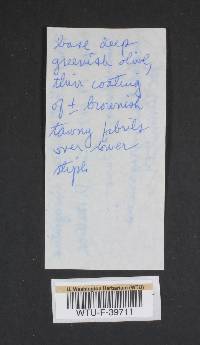 base deep
greenish olive,
thin coating
of ± brownish
tawny fibrils
over lower
stipe
U. Washington Herbarium (WTU)
WTU-F-39711